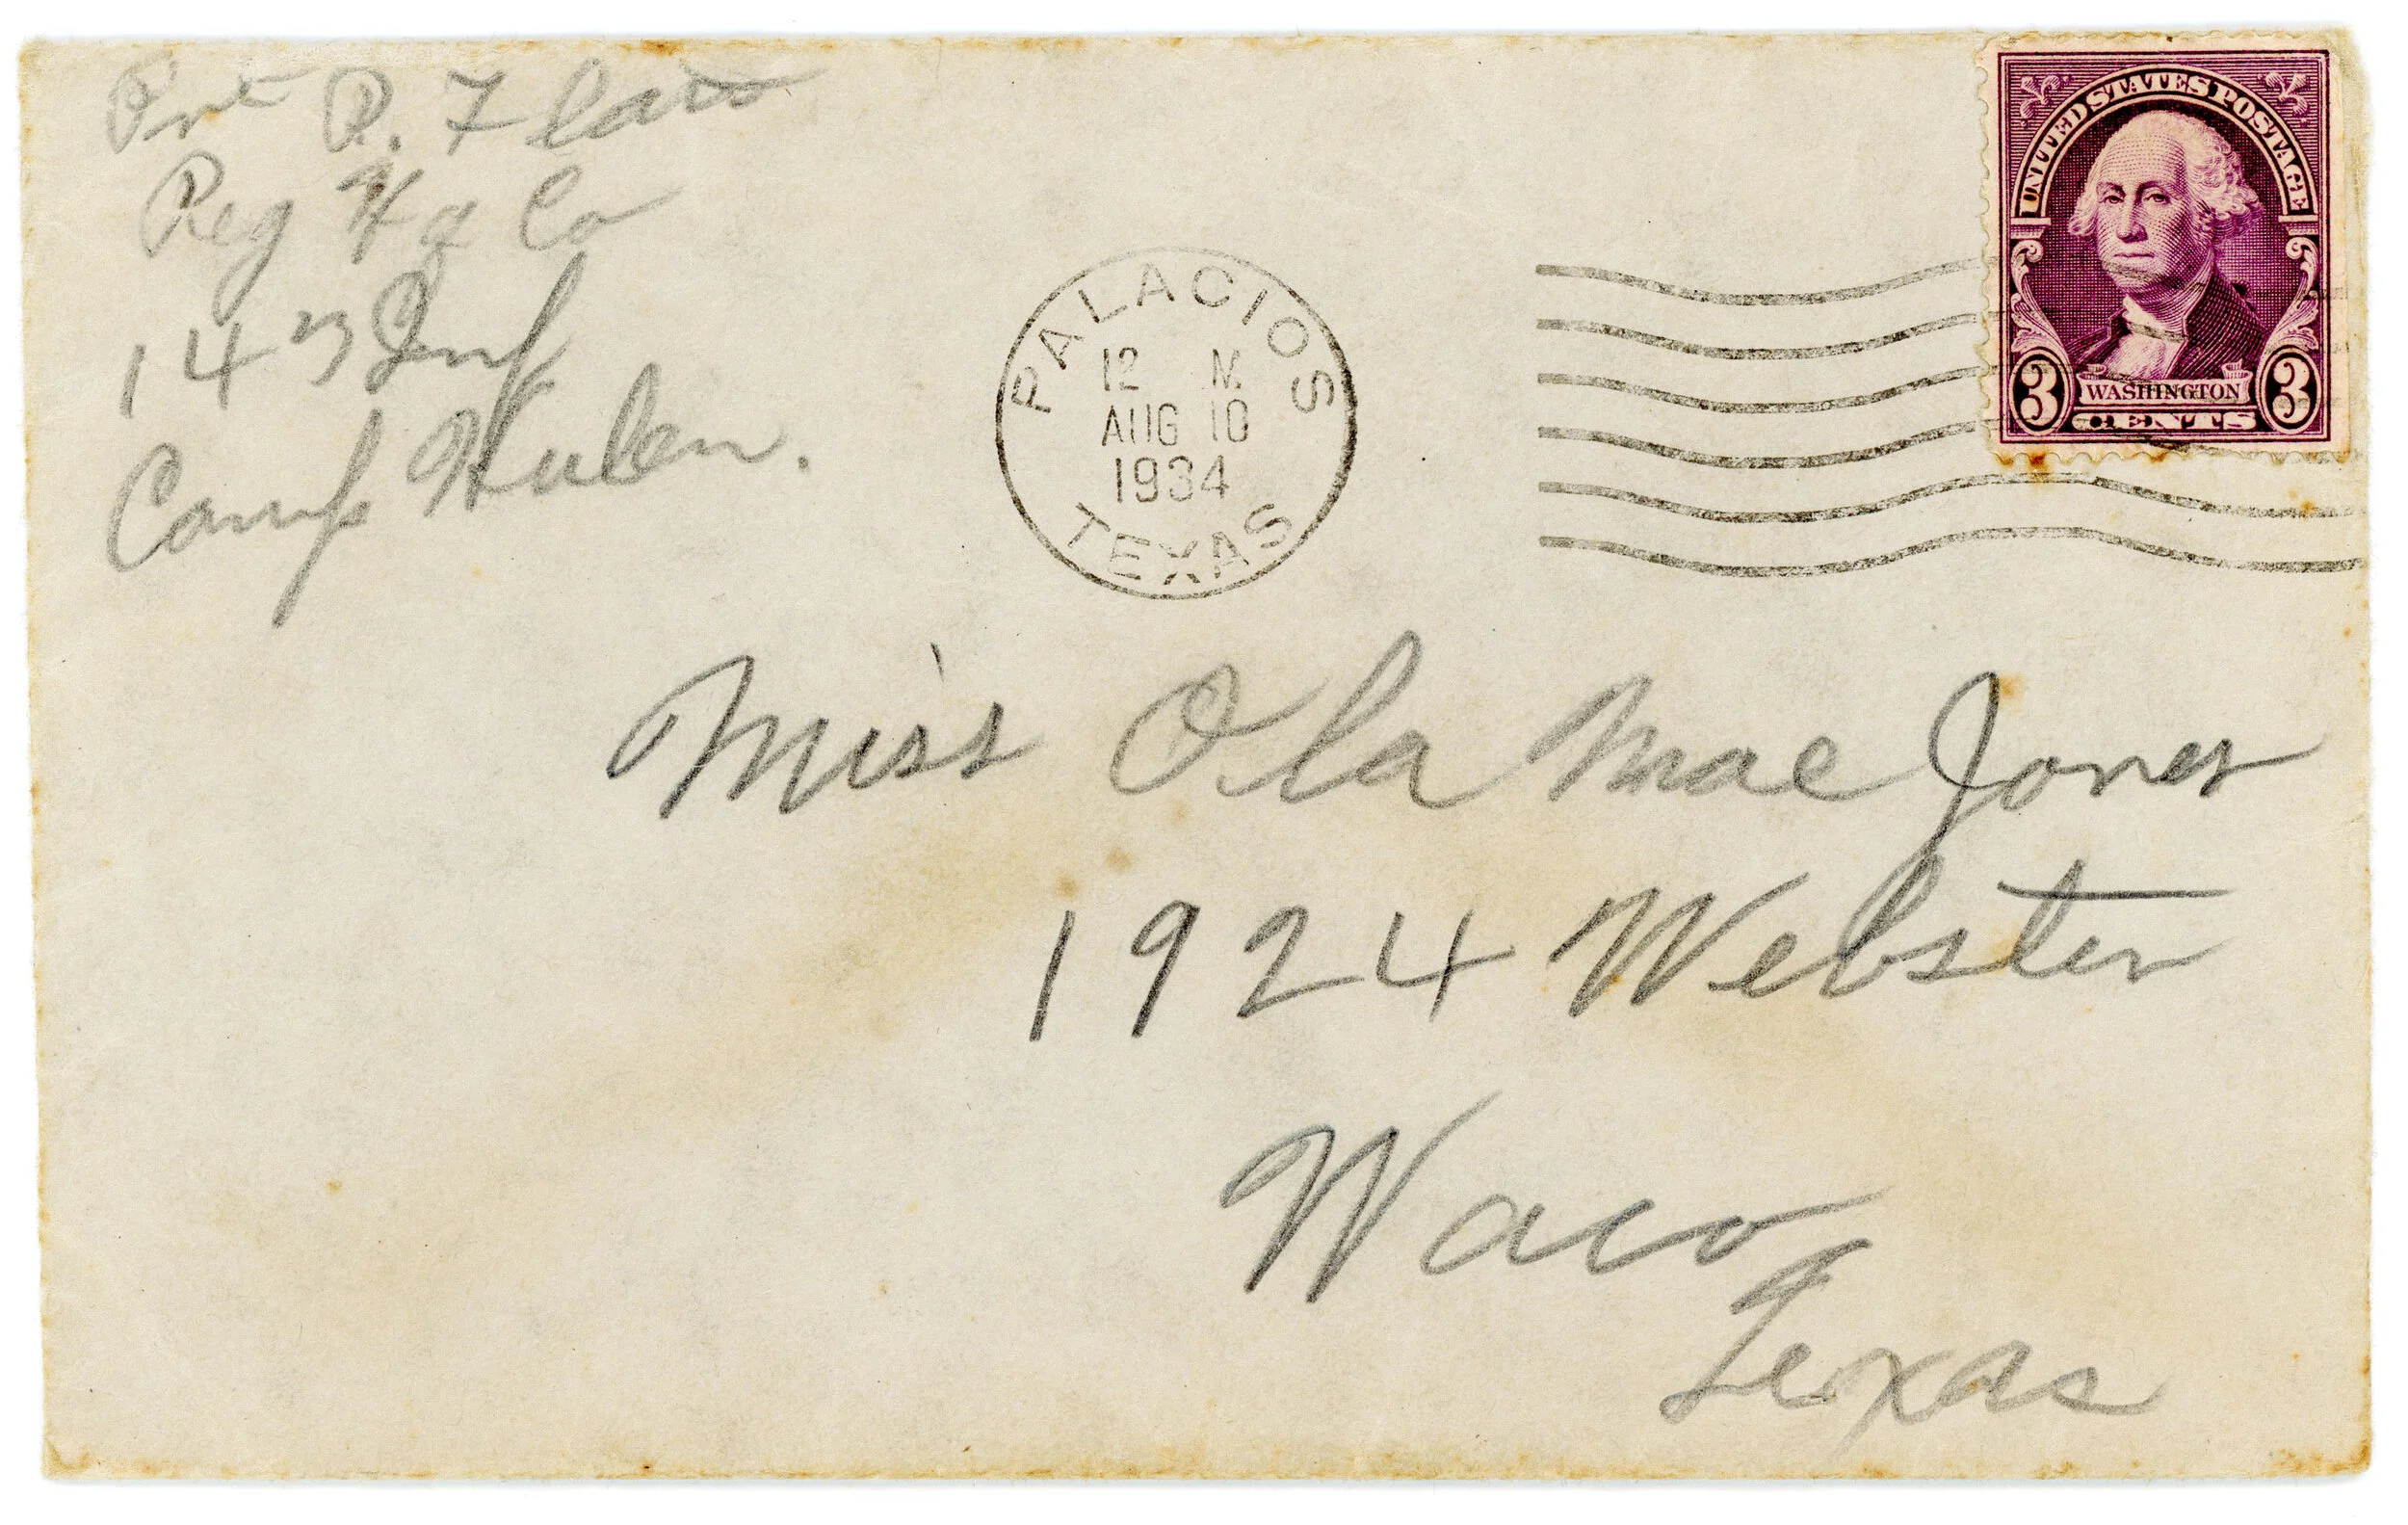 Pvt R. Flato
Reg Hq Co
143 Inf
Camp Hulen.
PALACIOS
12 M
AUG 10
1934
TEXAS
UNITED STATES POSTAGE
3 WASHINGTON 3
CENTS
Miss Ola Mae Jones
1924 Webster
Waco
Texas